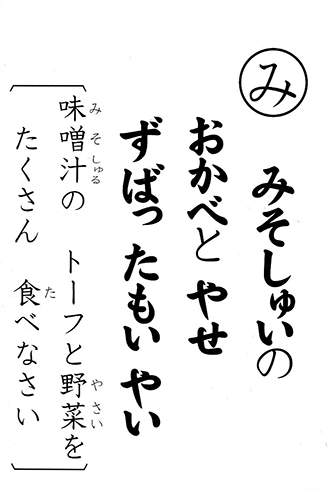 み
みそしゅいの
おかべと やせ
ずばっ たもい やい
味噌汁の トーフと野菜を
たくさん 食べなさい
みそしゅる
やさい
た